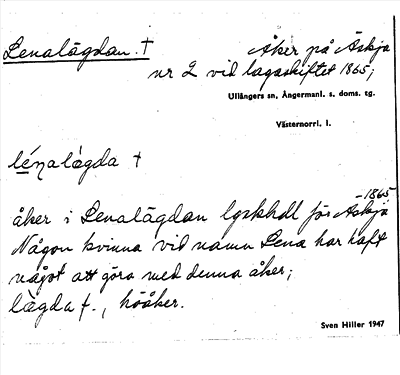 Lenalägdan. †
Åker på Äskja
nr 2 vid lagaskiftet 1865;
Ullångers sn, Ångermanl. s. doms. tg.
Västernorrl. l.
lénalàgda †
åker i Lenalägdan lgskhdl för Äskja -1865
Någon kvinna vid namn Lena har haft
något att göra med denna åker;
làgda f., höåker.
Sven Hiller 1947